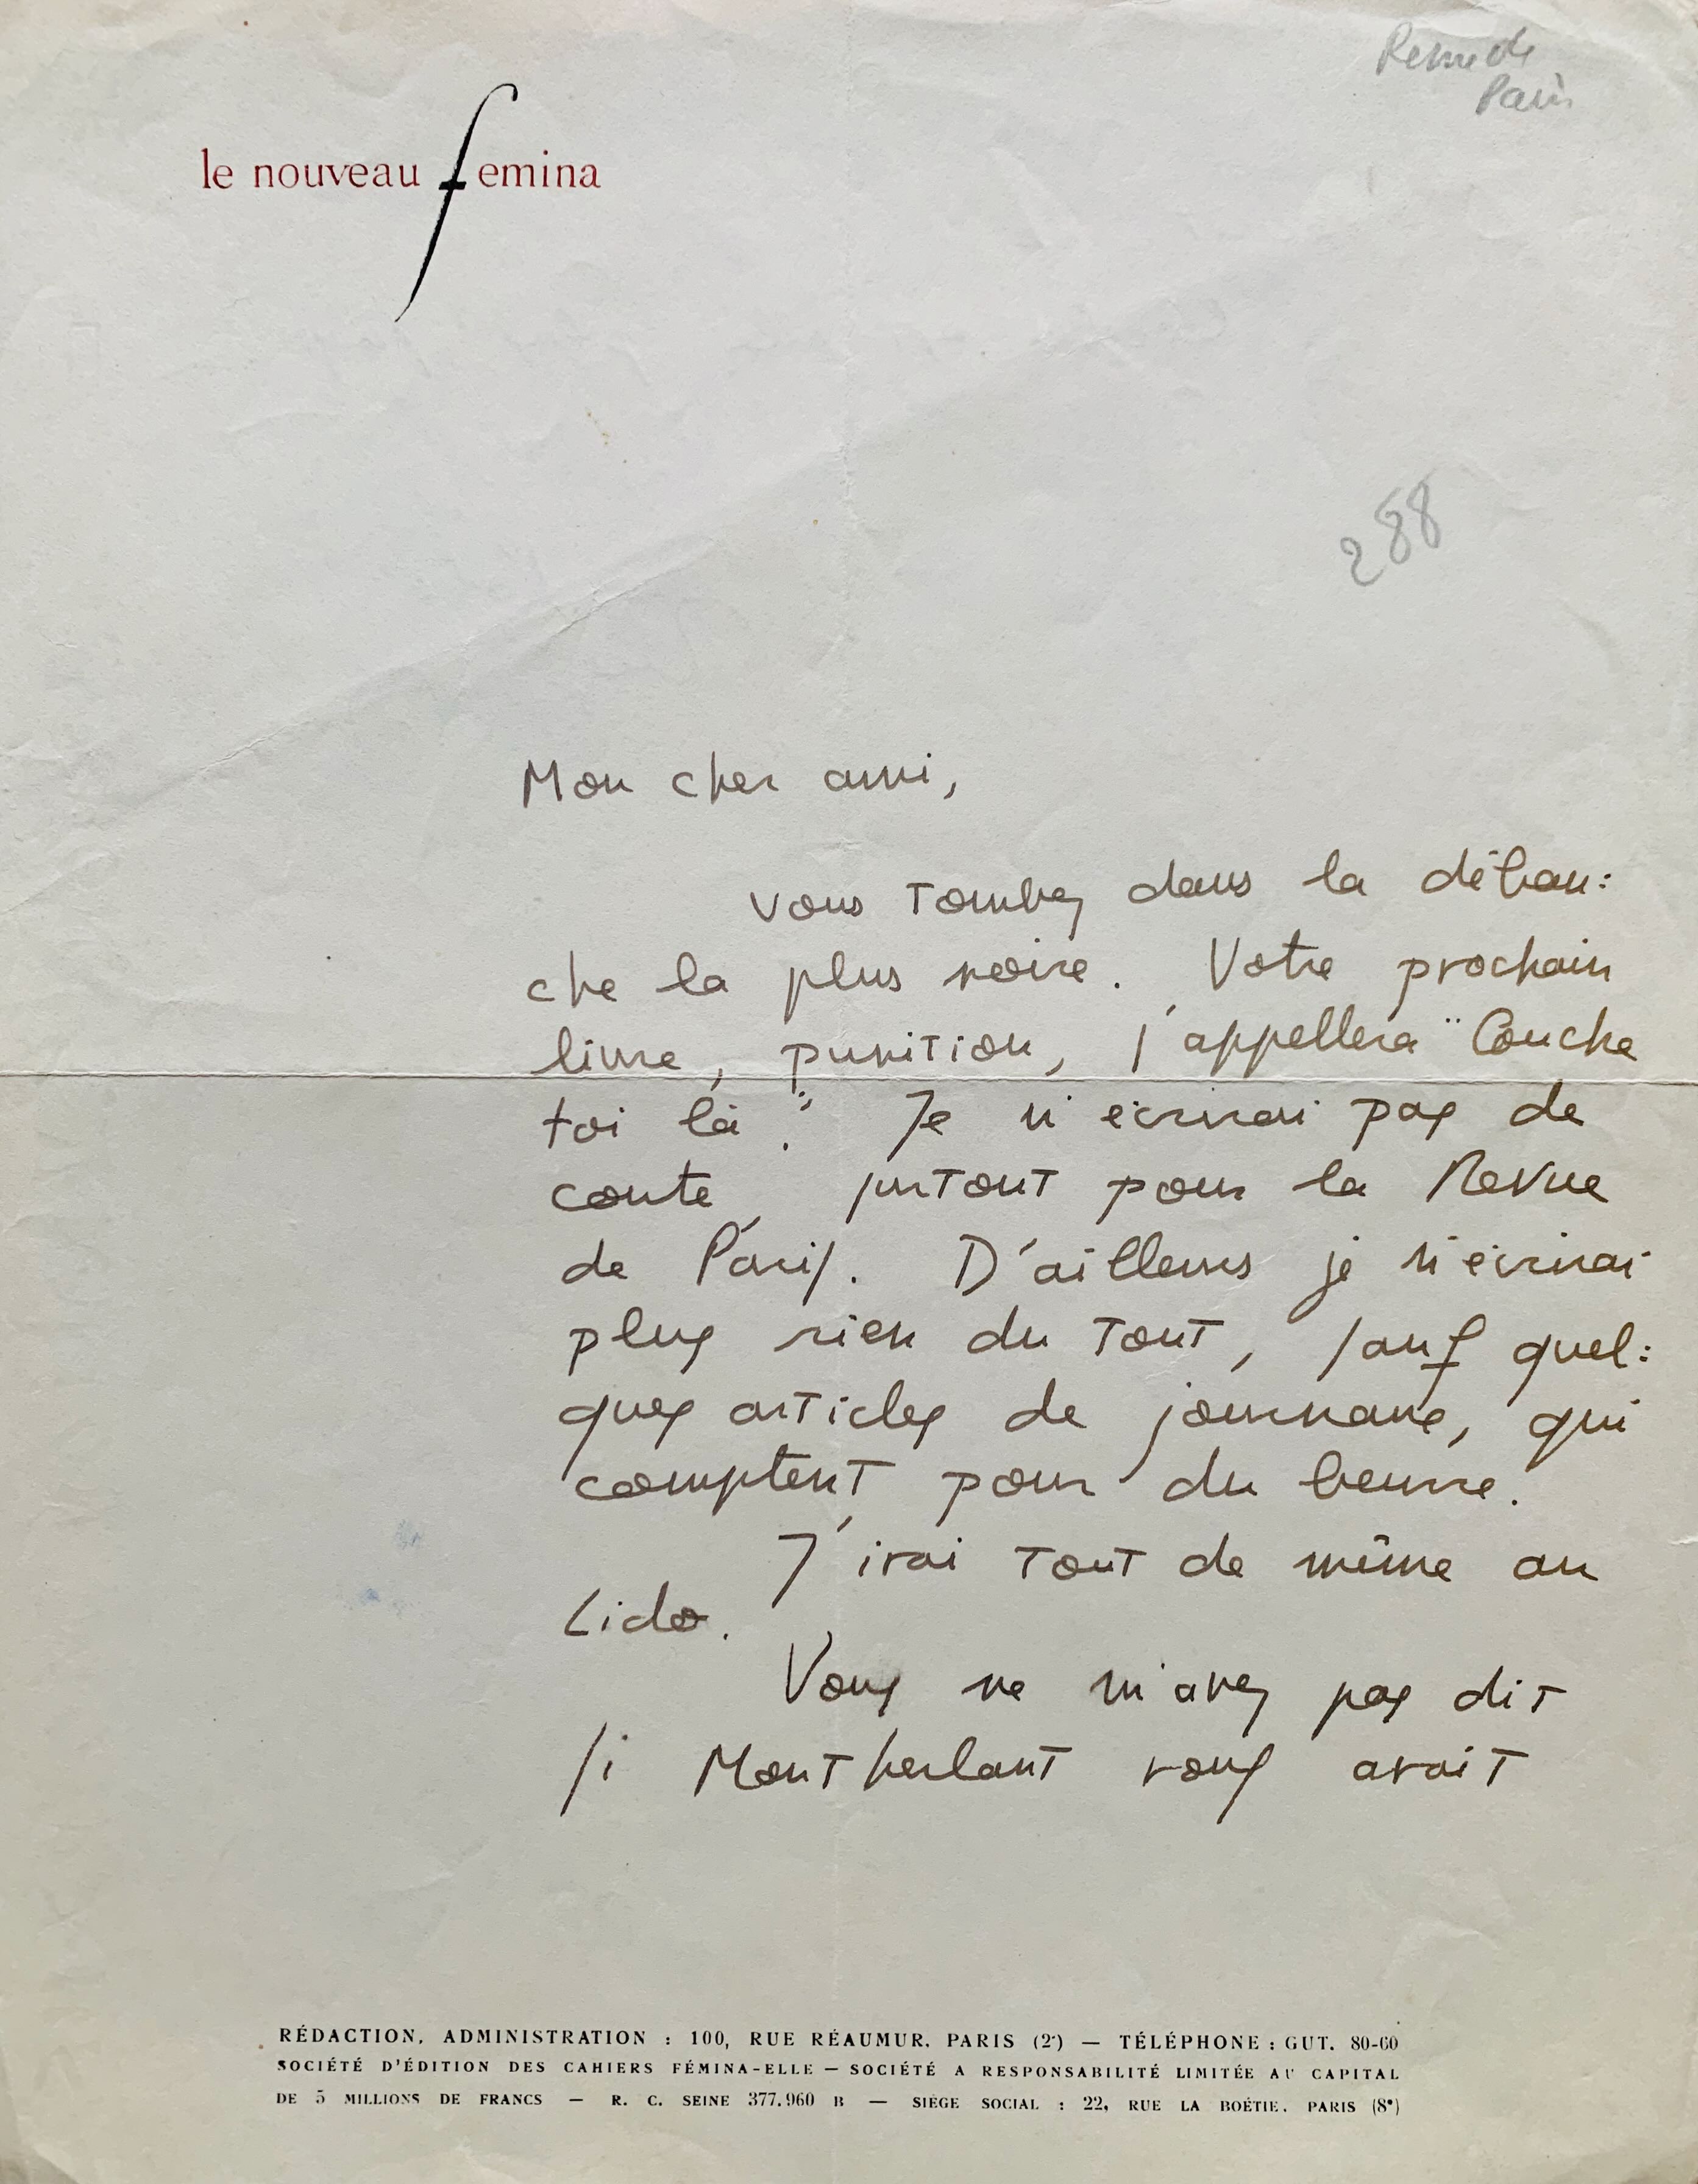 Revue de
Paris
le nouveau femina
288
Mon cher ami,
Vous tombez dans la débau:
che la plus noire. Votre prochain
livre, punition, s'appellera "Couche
toi là". Je n'écrirai pas de
conte, surtout pour la Revue
de Paris. D'ailleurs je n'écrirai
plus rien du tout, sauf quel:
ques articles de journaux, qui
comptent pour du beurre.
J'irai tout de même au
Lido.
Vous ne m'avez pas dit
si Montherlant vous avait
RÉDACTION, ADMINISTRATION : 100, RUE RÉAUMUR, PARIS (2ᵉ) — TÉLÉPHONE : GUT. 80-60
SOCIÉTÉ D'ÉDITION DES CAHIERS FÉMINA-ELLE — SOCIÉTÉ A RESPONSABILITÉ LIMITÉE AU CAPITAL
DE 5 MILLIONS DE FRANCS — R. C. SEINE 377.960 B — SIÈGE SOCIAL : 22, RUE LA BOÉTIE, PARIS (8ᵉ)